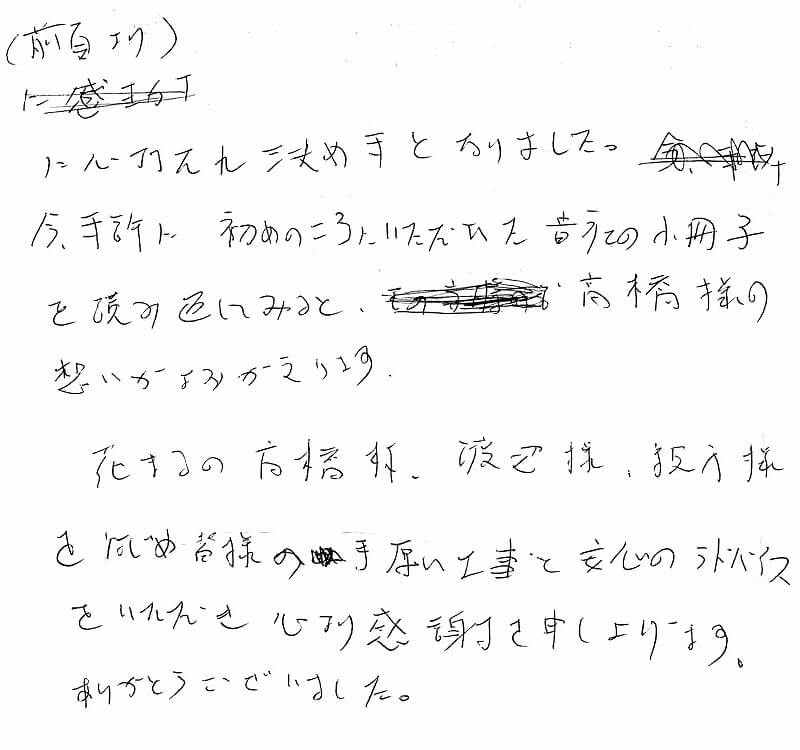 (前頁より)
に心打たれ決め手となりました。
今、手許に 初めのころにいただいた 昔立の小冊子
を読み返してみると、高橋様の
想いがよみがえります。
花まるの高橋様、渡辺様、様
をはじめ皆様の手厚い工事と安心のアドバイス
をいただき 心より感謝を申し上げます。
ありがとうございました。